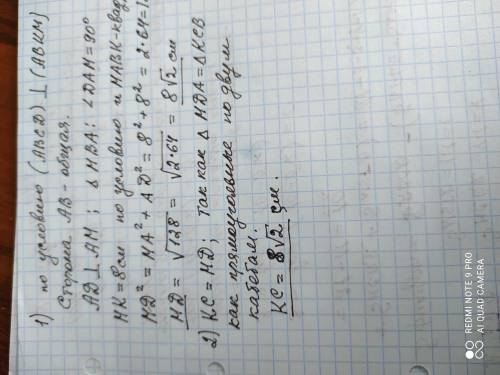 1) по условию (ABCD) ⊥ (ABKM)
Сторона AB - общая.
AD ⊥ AM ; △ MBA : ∠DAM = 90°
MK = 8 см по условию и MABK - квад
MD² = MA² + AD² = 8² + 8² = 2·64 = 1
MD = √128 = √2·64 = 8√2 см
2) KC = MD; так как △ MDA = △ KCB
как прямоугольные по двум
катетам.
KC = 8√2 см.
REDMI NOTE 9 PRO
AI QUAD CAMERA